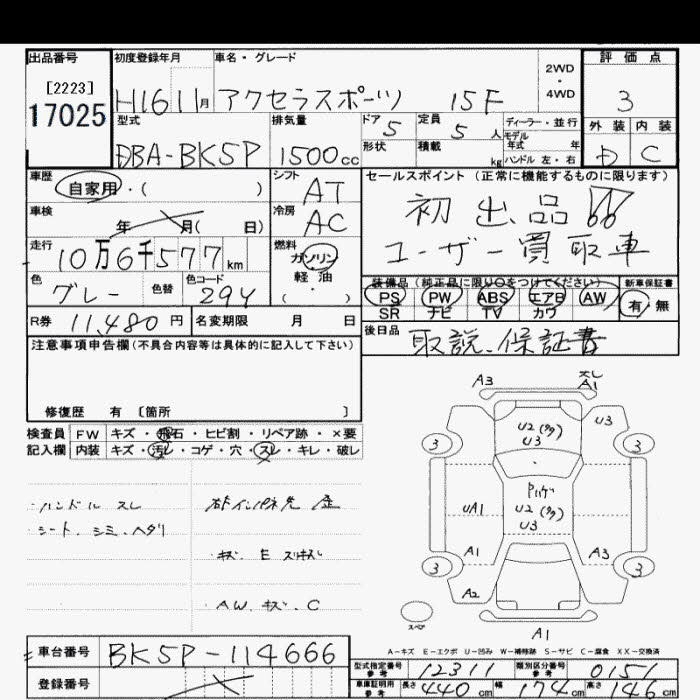 出品番号 初度登録年月 車名・グレード 2WD・4WD 評価点
[2223] 17025 H16 11月 アクセラスポーツ 15F 3
型式 排気量 ドア 5 定員 5人 ディーラー・並行 外装 内装
モデル年式 年
DBA-BK5P 1500cc 形状 積載 kg ハンドル 左・右 D C
車歴 自家用・( ) シフト AT セールスポイント (正常に機能するものに限ります)
車検 年 月( 日) 冷房 AC 初出品!!
走行 10万6千577km 燃料 ガソリン 軽油 ( ・ ) ユーザー買取車
色 グレー 色替 色コード 29Y
装備品 (純正品に限り○をつけてください) 新車保証書
PS PW ABS エアB AW 有/無
SR ナビ TV カワ
R券 11,480円 名変期限 月 日 後日品 取説、保証書
注意事項申告欄(不具合内容等は具体的に記入して下さい)
修復歴 有 〔箇所 〕
検査員記入欄 FW キズ・飛石・ヒビ割・リペア跡・×要
内装 キズ・汚れ・コゲ・穴・スレ・キレ・破レ
・ハンドル スレ
・シート、シミ・ヘタリ
・キズ E
・AW、キズ、C
A3 スレ A1
U2(多) U3 U3
3 3
Pハゲ
UA1 U2(多) U3
A1 A3
3 3
A2
スペア
A1
A-キズ E-エクボ U-凹み W-補修跡 S-サビ C-腐食 XX-交換済
車台番号 BK5P-114666
登録番号
型式指定番号 参考 12311 類別区分番号 参考 0151
車庫証明用 参考 長さ 440cm 幅 174cm 高さ 146cm